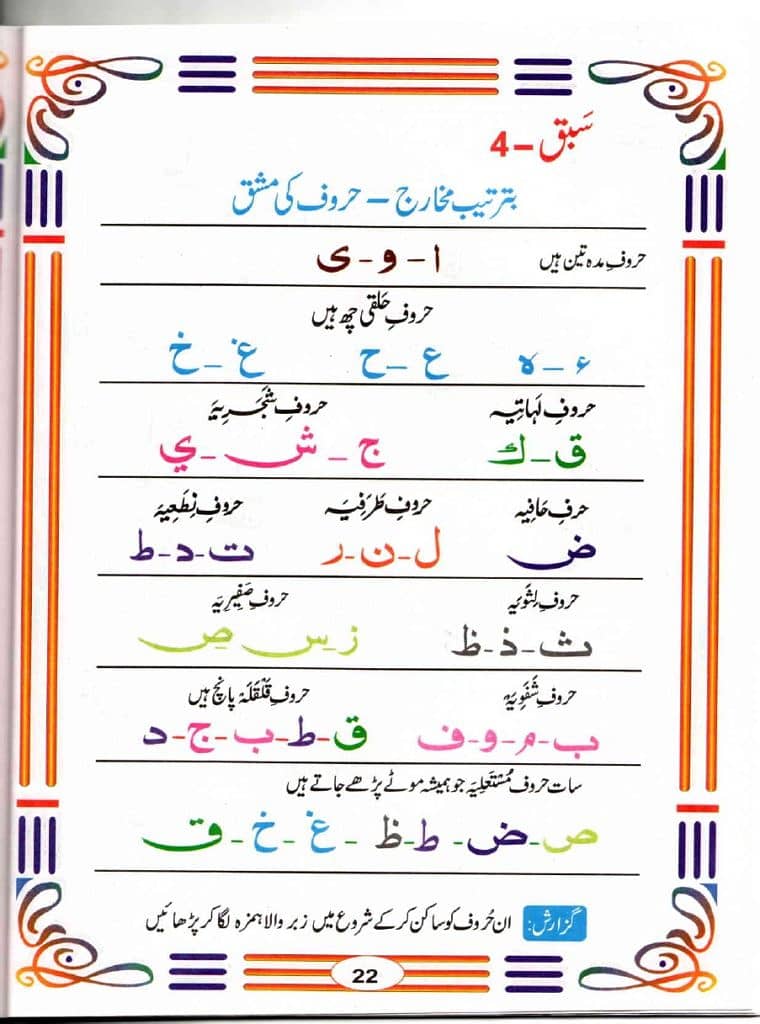 سَبق – 4
بترتیب مخارج – حروف کی مشق
حروفِ مدہ تین ہیں ا - و - ی
حروفِ حَلقی چھ ہیں
ء - ہ ع - ح غ - خ
حروفِ لَہاتیہ حروفِ شَجَرِیَہ
ق - ك ج - ش - ي
حرفِ حَافِیہ حروفِ طَرَفِیَہ حروفِ نِطَعِیَہ
ض ل - ن - ر ت - د - ط
حروفِ لِثَوِیَہ حروفِ صَفِیرِیَہ
ث - ذ - ظ ز - س - ص
حروفِ شَفَوِیَہ حروفِ قَلقَلَہ پانچ ہیں
ب - م - و - ف ق - ط - ب - ج - د
سات حروف مُستَعلِیَہ جو ہمیشہ موٹے پڑھے جاتے ہیں
ص - ض - ط - ظ - غ - خ - ق
گزارش: ان حُروف کو ساکن کر کے شروع میں زبر والا ہمزہ لگا کر پڑھائیں
22